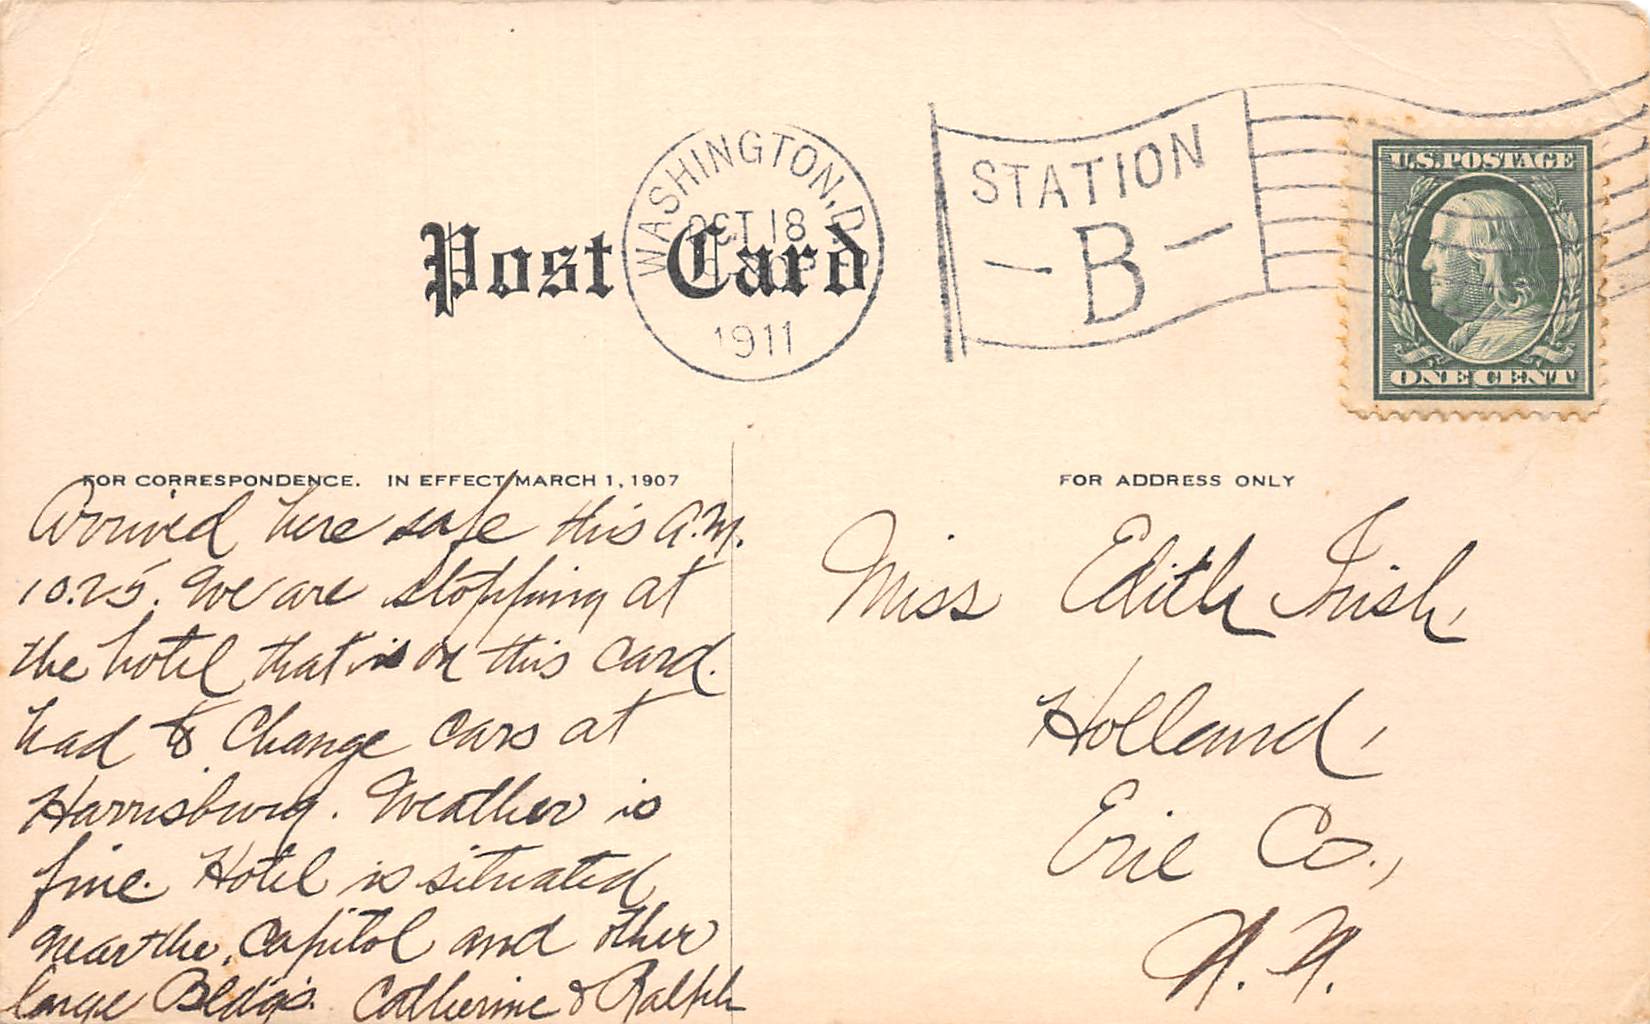 WASHINGTON, D.
OCT 18
1911
STATION
- B -
U.S. POSTAGE
ONE CENT
Post Card
FOR CORRESPONDENCE. IN EFFECT MARCH 1, 1907
FOR ADDRESS ONLY
Arrived here safe this A.M.
10.25. We are stopping at
the hotel that is on this card.
had to change cars at
Harrisburg. Weather is
fine. Hotel is situated
near the Capitol and other
large Bldgs. Catherine & Ralph
Miss Edith Irish,
Holland,
Erie Co.,
N.Y.